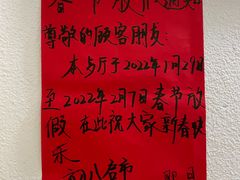 春节放假通知
尊敬的顾客朋友:
本与厅于2022年1月29日
至2022年2月7日春节放
假 在此祝大家新春快
乐